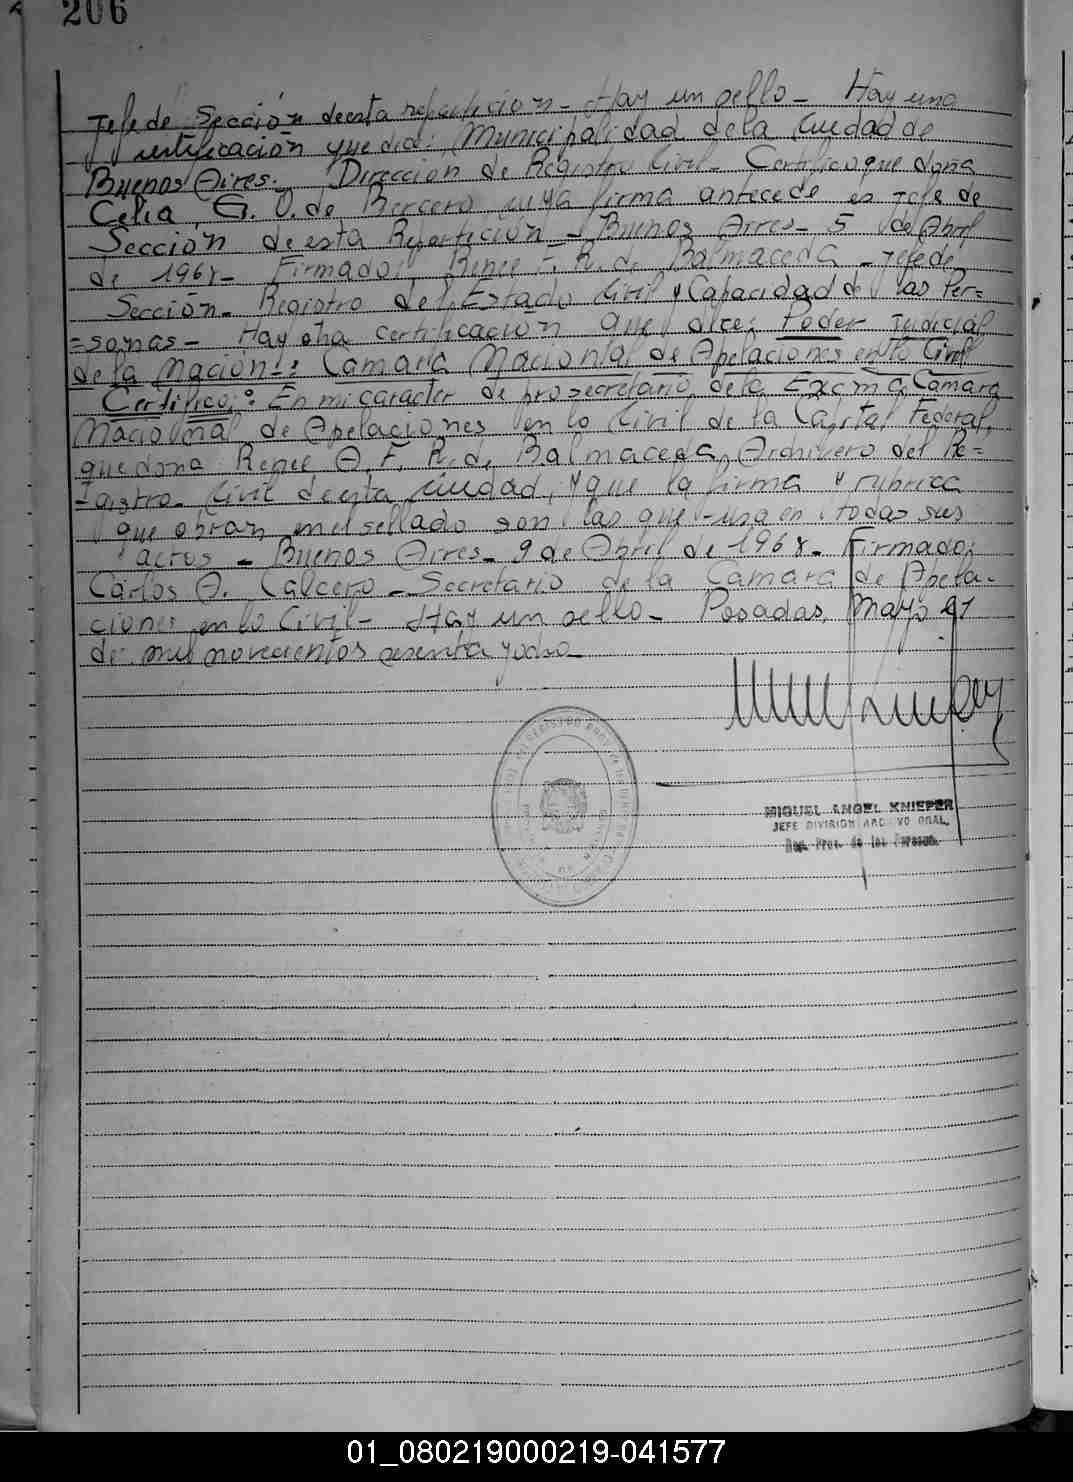 206
Jefe de Sección de esta repartición - Hay un sello - Hay una
certificación que dice: Municipalidad de la Ciudad de
Buenos Aires. Dirección de Registro Civil - Certifico que doña
Celia G. O. de Bercero cuya firma antecede es Jefe de
Sección de esta Repartición - Buenos Aires - 5 de Abril
de 1968 - Firmado: Renee F. R. de Balmaceda - Jefe de
Sección - Registro del Estado Civil y Capacidad de las Per=
=sonas - Hay otra certificación que dice: Poder Judicial
de la Nación: Camara Nacional de Apelaciones en lo Civil
Certifico: En mi caracter de prosecretario de la Excma. Camara
Nacional de Apelaciones en lo Civil de la Capital Federal,
que doña Renee A. F. R. de Balmaceda, Archivero del Re=
=gistro Civil de esta Ciudad, y que la firma y rubrica
que obran en el sellado son las que usa en todos sus
actos - Buenos Aires - 9 de Abril de 1968 - Firmado:
Carlos A. Calcero - Secretario de la Camara de Apela-
ciones en lo Civil - Hay un sello - Posadas, Mayo 27
de mil novecientos sesenta y ocho
MIGUEL ANGEL KNIEPER
JEFE DIVISION ARCHIVO GRAL.
Reg. Prov. de las Personas
01_080219000219-041577